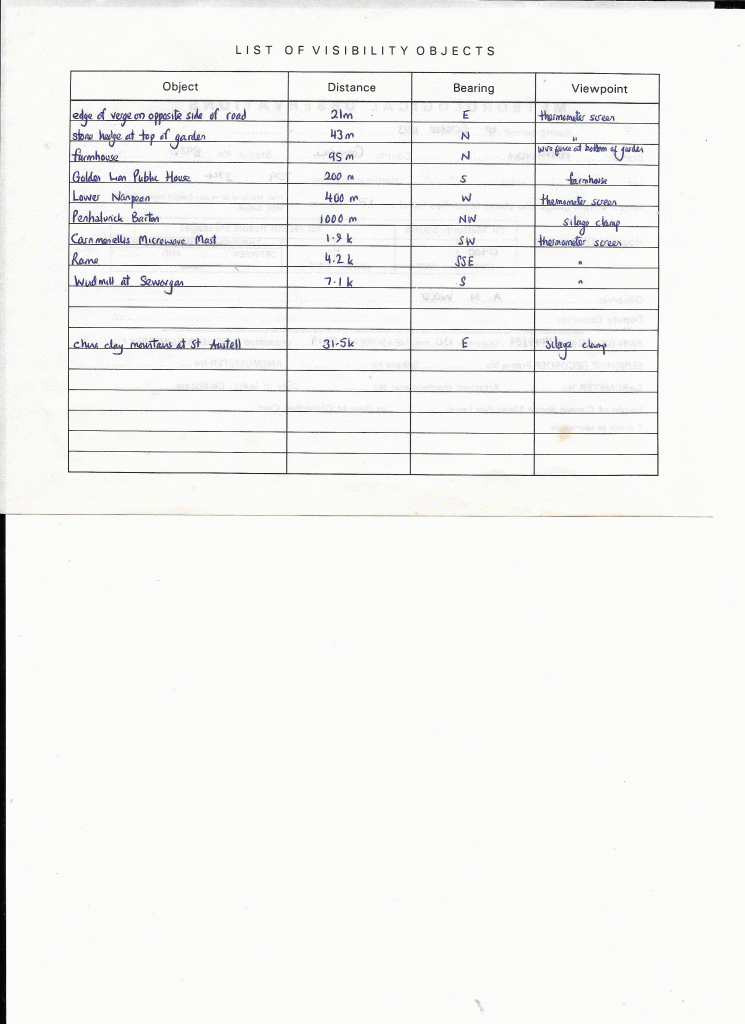 LIST OF VISIBILITY OBJECTS
Object Distance Bearing Viewpoint
edge of verge on opposite side of road 21m E thermometer screen
stone hedge at top of garden 43m N "
farmhouse 95m N wire fence at bottom of garden
Golden Lion Public House 200 m S farmhouse
Lower Nanpean 400 m W thermometer screen
Penhalurick Barton 1000 m NW silage clamp
Carnmenellis Microwave Mast 1.9 k SW thermometer screen
Rame 4.2 k SSE "
Windmill at Seworgan 7.1 k S "
china clay mountains at St Austell 31.5k E silage clamp